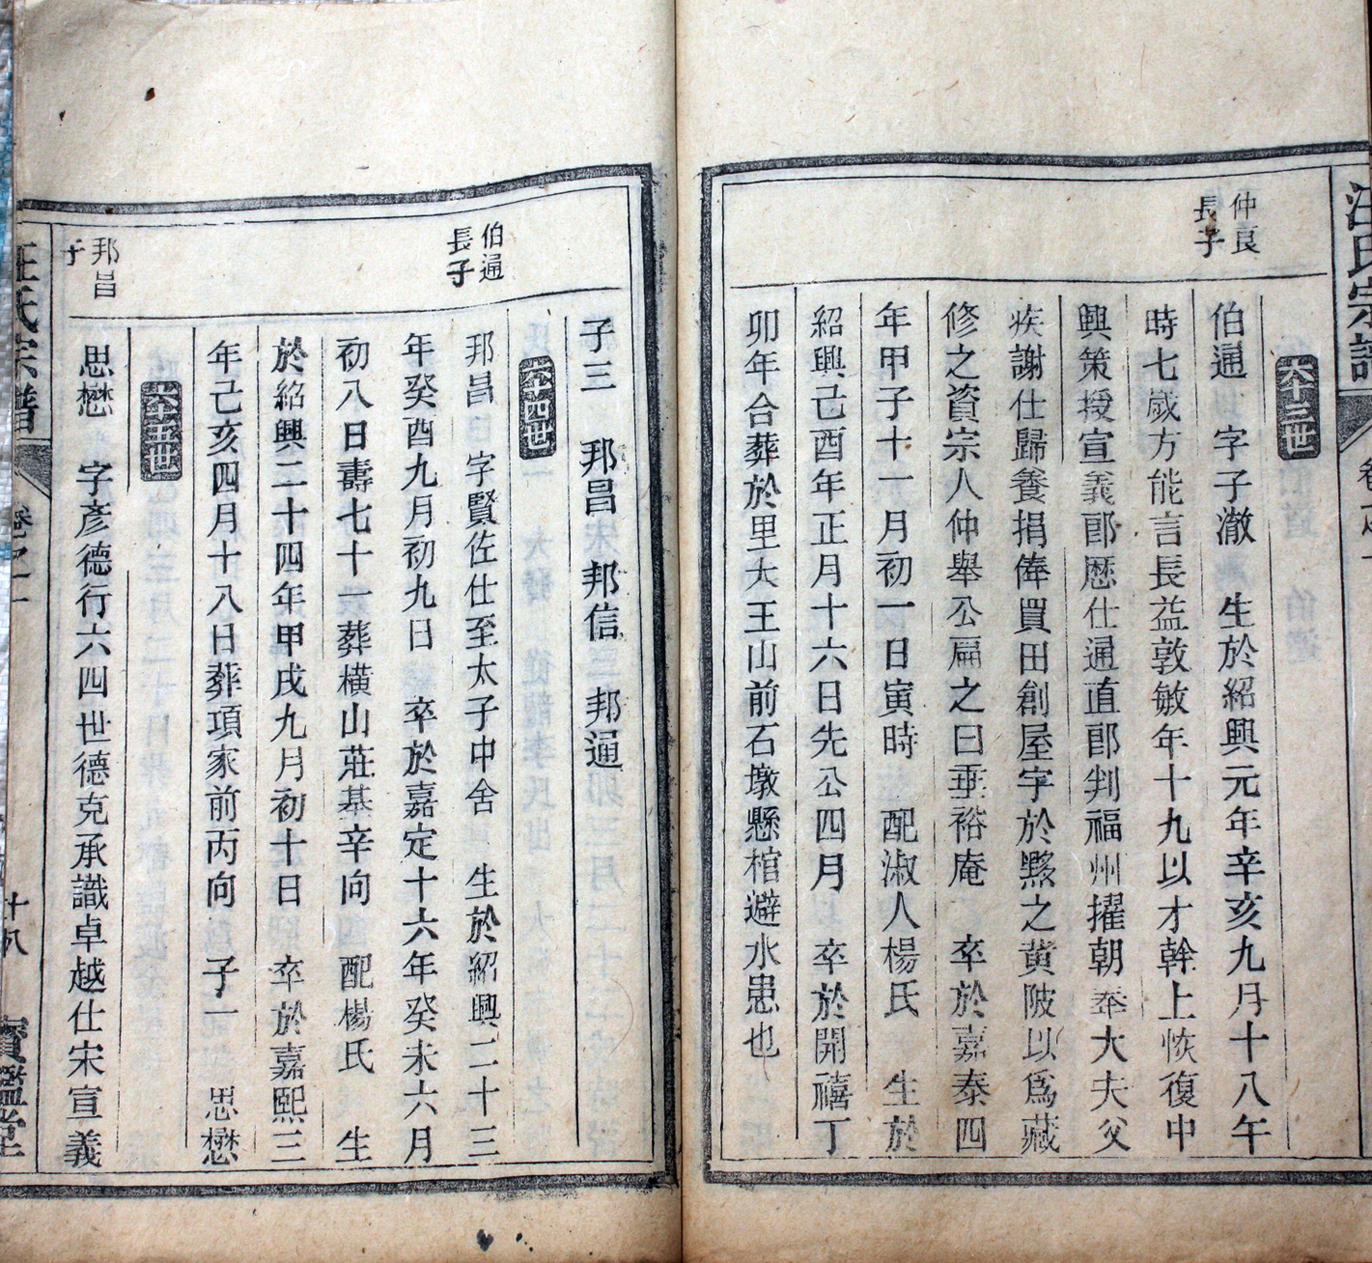 汪氏宗譜
仲良
長子
六十三世
伯通 字子澈 生於紹興元年辛亥九月十八午
時七歲方能言長益敦敏年十九以才幹上恢復中
興策授宣義郎歴仕通直郎判福州擢朝奉大夫父
疾謝仕歸養捐俸買田創屋字於黟之黄陂以爲藏
修之資宗人仲舉公扁之曰垂裕庵 卒於嘉泰四
年甲子十一月初一日寅時 配淑人楊氏 生於
紹興己酉年正月十六日先公四月 卒於開禧丁
卯年合葬於里大王山前石墩懸棺避水患也
伯通
長子
子三 邦昌 邦信 邦通
六十四世
邦昌 字賢佐仕至太子中舍 生於紹興二十三
年癸酉九月初九日 卒於嘉定十六年癸未六月
初八日壽七十一葬橫山莊基辛向 配楊氏 生
於紹興二十四年甲戌九月初十日 卒於嘉熙三
年己亥四月十八日葬項家前丙向 子一 思懋
邦昌
子
六十五世
思懋 字彥德行六四世德克承識卓越仕宋宣義
汪氏宗譜 卷之一 十八 寶鑑堂